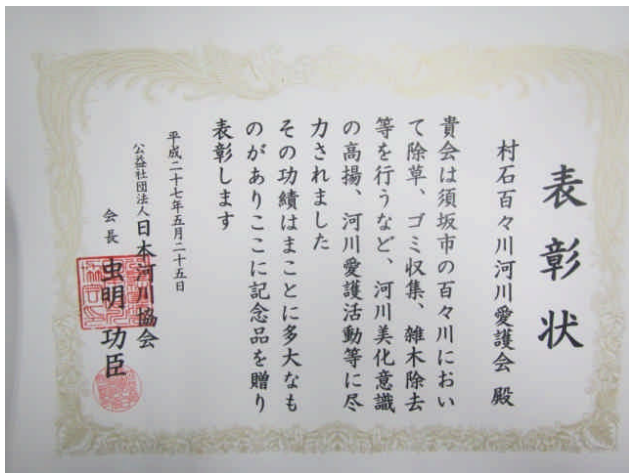 表彰状
村石百々川河川愛護会 殿
貴会は須坂市の百々川におい
て除草、ゴミ収集、雑木除去
等を行うなど、河川美化意識
の高揚、河川愛護活動等に尽
力されました
その功績はまことに多大なも
のがありここに記念品を贈り
表彰します
平成二十七年五月二十五日
公益社団法人日本河川協会
会長 虫明功臣